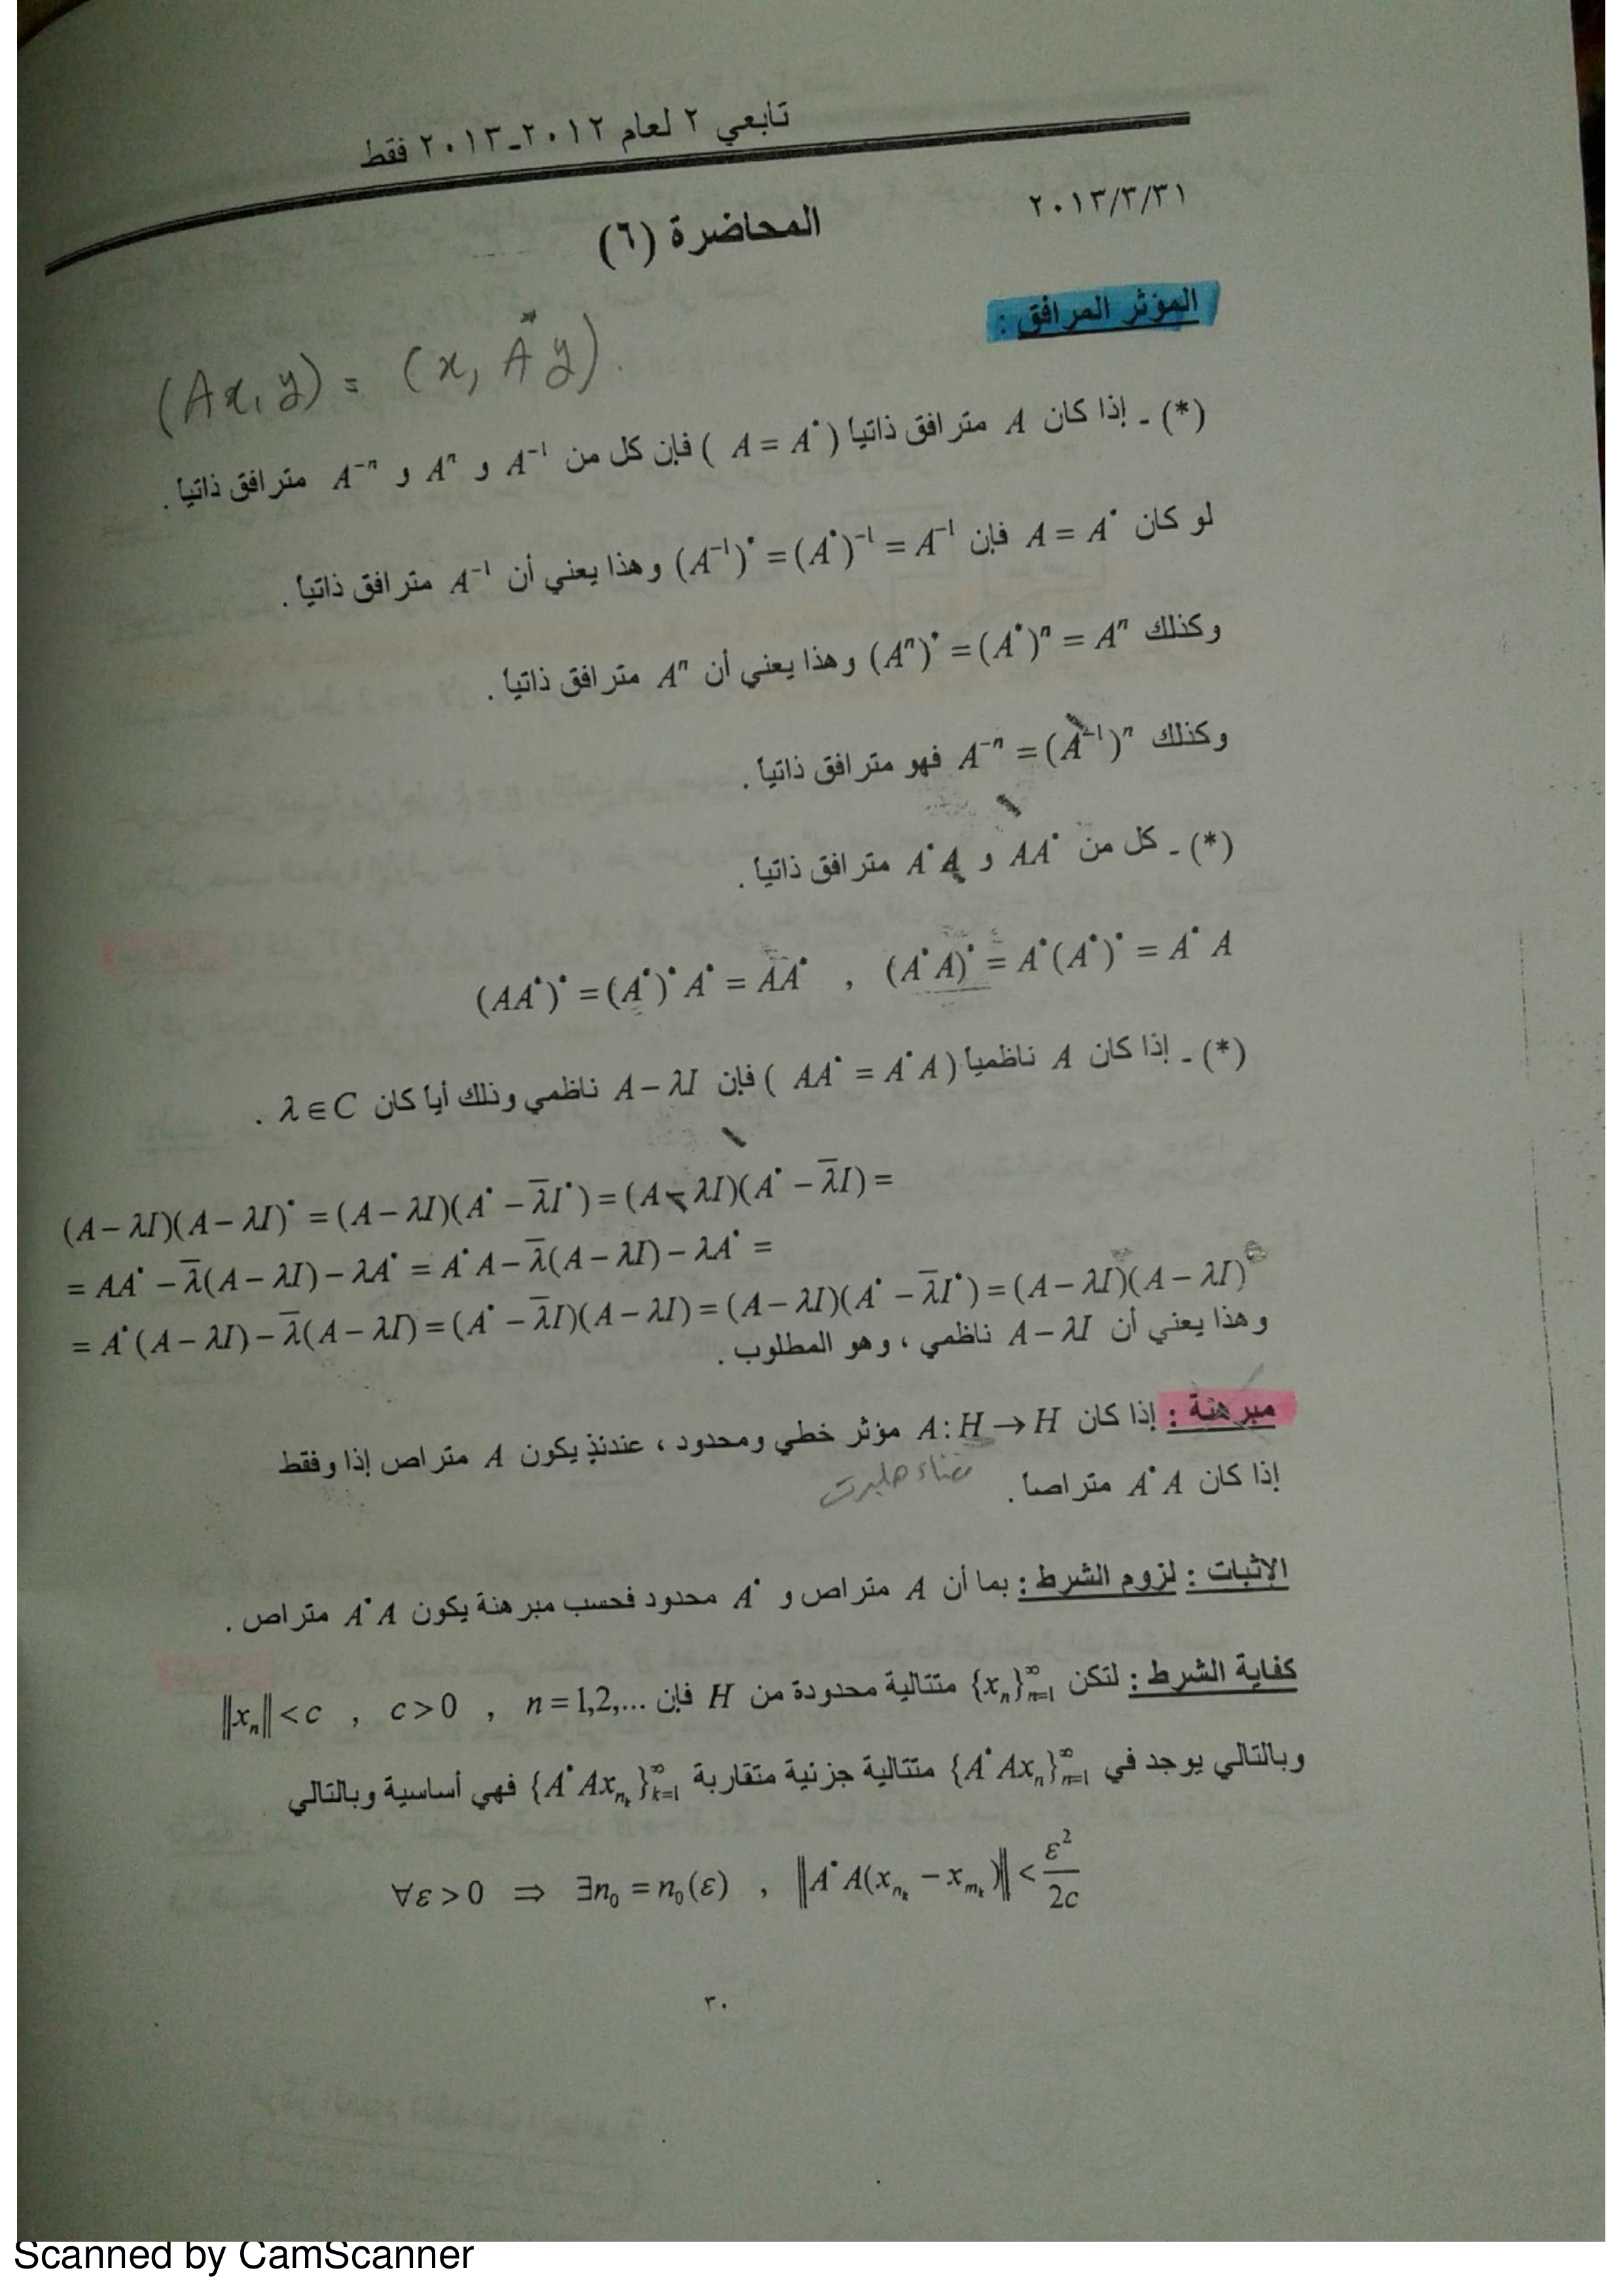 تابعي ٢ لعام ٢٠١٢-٢٠١٣ فقط
٢٠١٣/٣/٣١
المحاضرة (٦)
المؤثر المرافق :
(Ax, y) = (x, A*y).
(*) - إذا كان A مترافق ذاتياً ( A = A* ) فإن كل من A⁻¹ و Aⁿ و A⁻ⁿ مترافق ذاتياً .
لو كان A = A* فإن (A⁻¹)* = (A*)⁻¹ = A⁻¹ وهذا يعني أن A⁻¹ مترافق ذاتياً .
وكذلك (Aⁿ)* = (A*)ⁿ = Aⁿ وهذا يعني أن Aⁿ مترافق ذاتياً .
وكذلك A⁻ⁿ = (A⁻¹)ⁿ فهو مترافق ذاتياً .
(*) - كل من AA* و A*A مترافق ذاتياً .
(AA*)* = (A*)* A* = AA* , (A*A)* = A*(A*)* = A*A
(*) - إذا كان A ناظمياً ( AA* = A*A ) فإن A − λI ناظمي وذلك أياً كان λ ∈ C .
(A − λI)(A − λI)* = (A − λI)(A* − λ̄I*) = (A − λI)(A* − λ̄I) =
= AA* − λ̄(A − λI) − λA* = A*A − λ̄(A − λI) − λA* =
= A*(A − λI) − λ̄(A − λI) = (A* − λ̄I)(A − λI) = (A − λI)(A* − λ̄I*) = (A − λI)(A − λI)*
وهذا يعني أن A − λI ناظمي ، وهو المطلوب .
مبرهنة : إذا كان A : H → H مؤثر خطي ومحدود ، عندئذٍ يكون A متراص إذا وفقط
فضاء هلبرت
إذا كان A*A متراصاً .
الإثبات : لزوم الشرط : بما أن A متراص و A* محدود فحسب مبرهنة يكون A*A متراص .
كفاية الشرط : لتكن {xₙ}ₙ₌₁^∞ متتالية محدودة من H فإن ‖xₙ‖ < c , c > 0 , n = 1,2,...
وبالتالي يوجد في {A*Axₙ}ₙ₌₁^∞ متتالية جزئية متقاربة {A*Ax_{n_k}}ₖ₌₁^∞ فهي أساسية وبالتالي
∀ε > 0 ⇒ ∃n₀ = n₀(ε) , ‖A*A(x_{n_k} − x_{m_k})‖ < ε²/2c
٣٠
Scanned by CamScanner